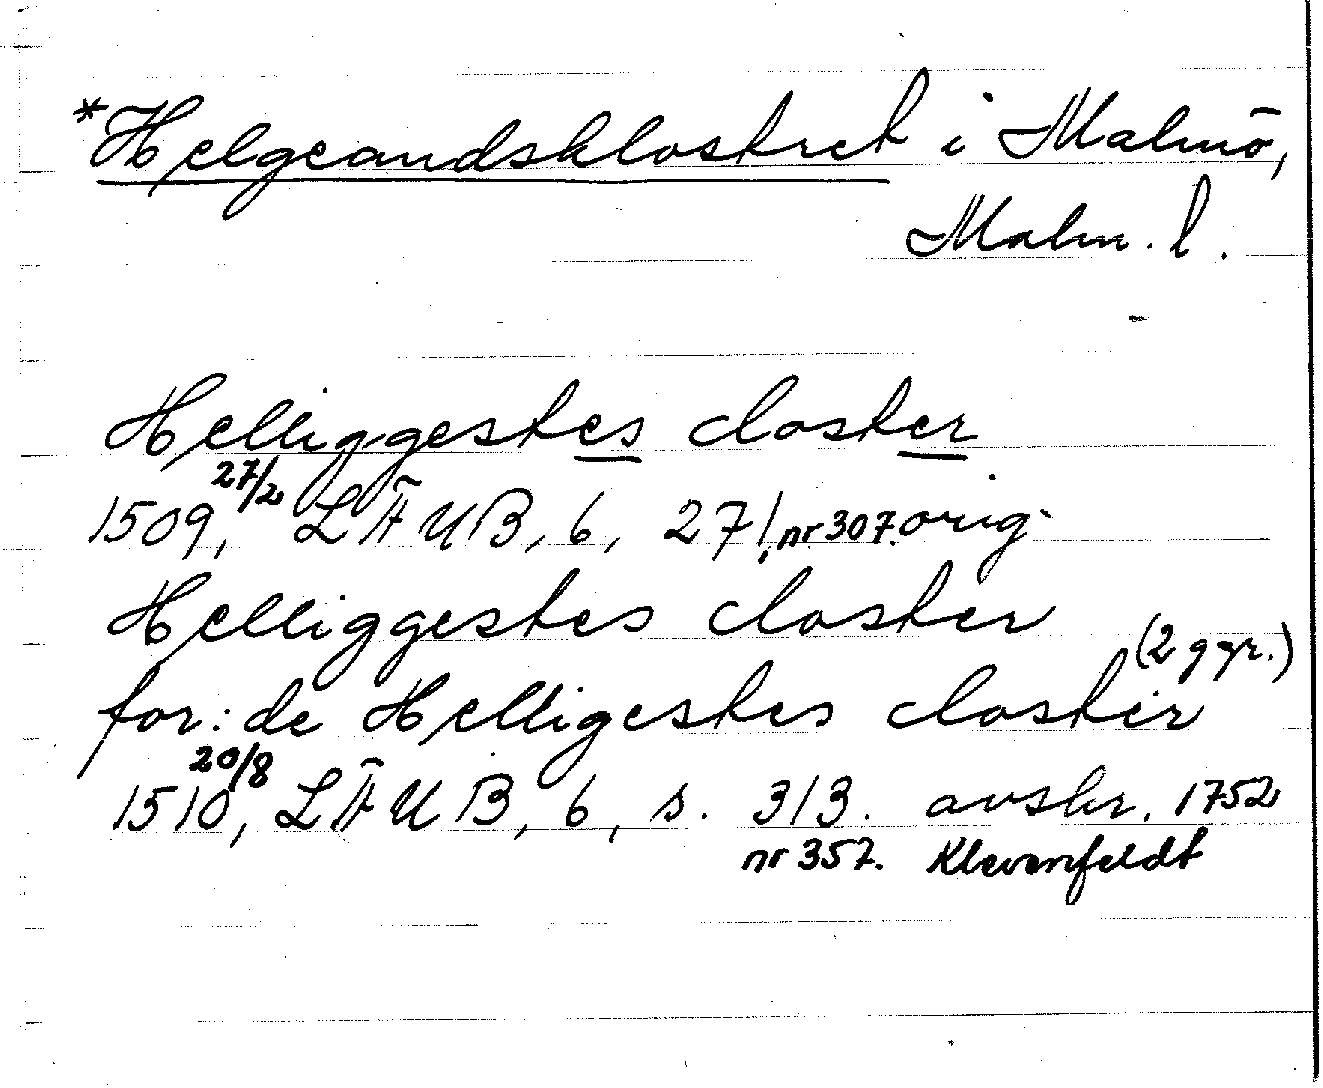 *Helgeandsklostret i Malmö,
Malm. l.
Helliggestes closter
1509, 27/2 LÄUB, 6, 271, nr 307. orig.
Helliggestes closter
for: de Helligestes closter (2 ggr.)
1510, 20/8 LÄUB, 6, s. 313. avskr. 1752
nr 357. Klevenfeldt